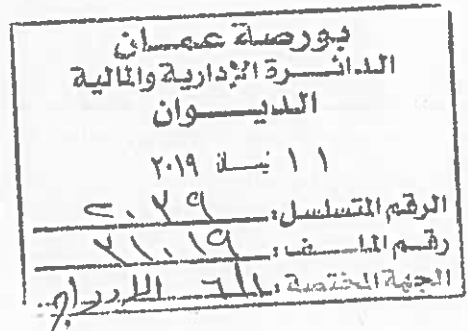 بورصة عمان
الدائرة الإدارية والمالية
الديوان
١١ نيسان ٢٠١٩
الرقم المتسلسل:
رقم الملف:
الجهة المختصة: الإدراج